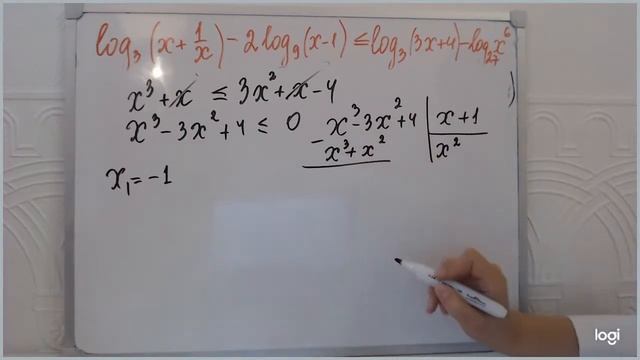 log₃(x+1/x)-2log₉(x-1)≤log₃(3x+4)-log₂₇x⁶
x³+x ≤ 3x²+x-4
x³-3x²+4≤0
x³-3x²+4 | x+1
-x³+x² | x²
x₁=-1
logi